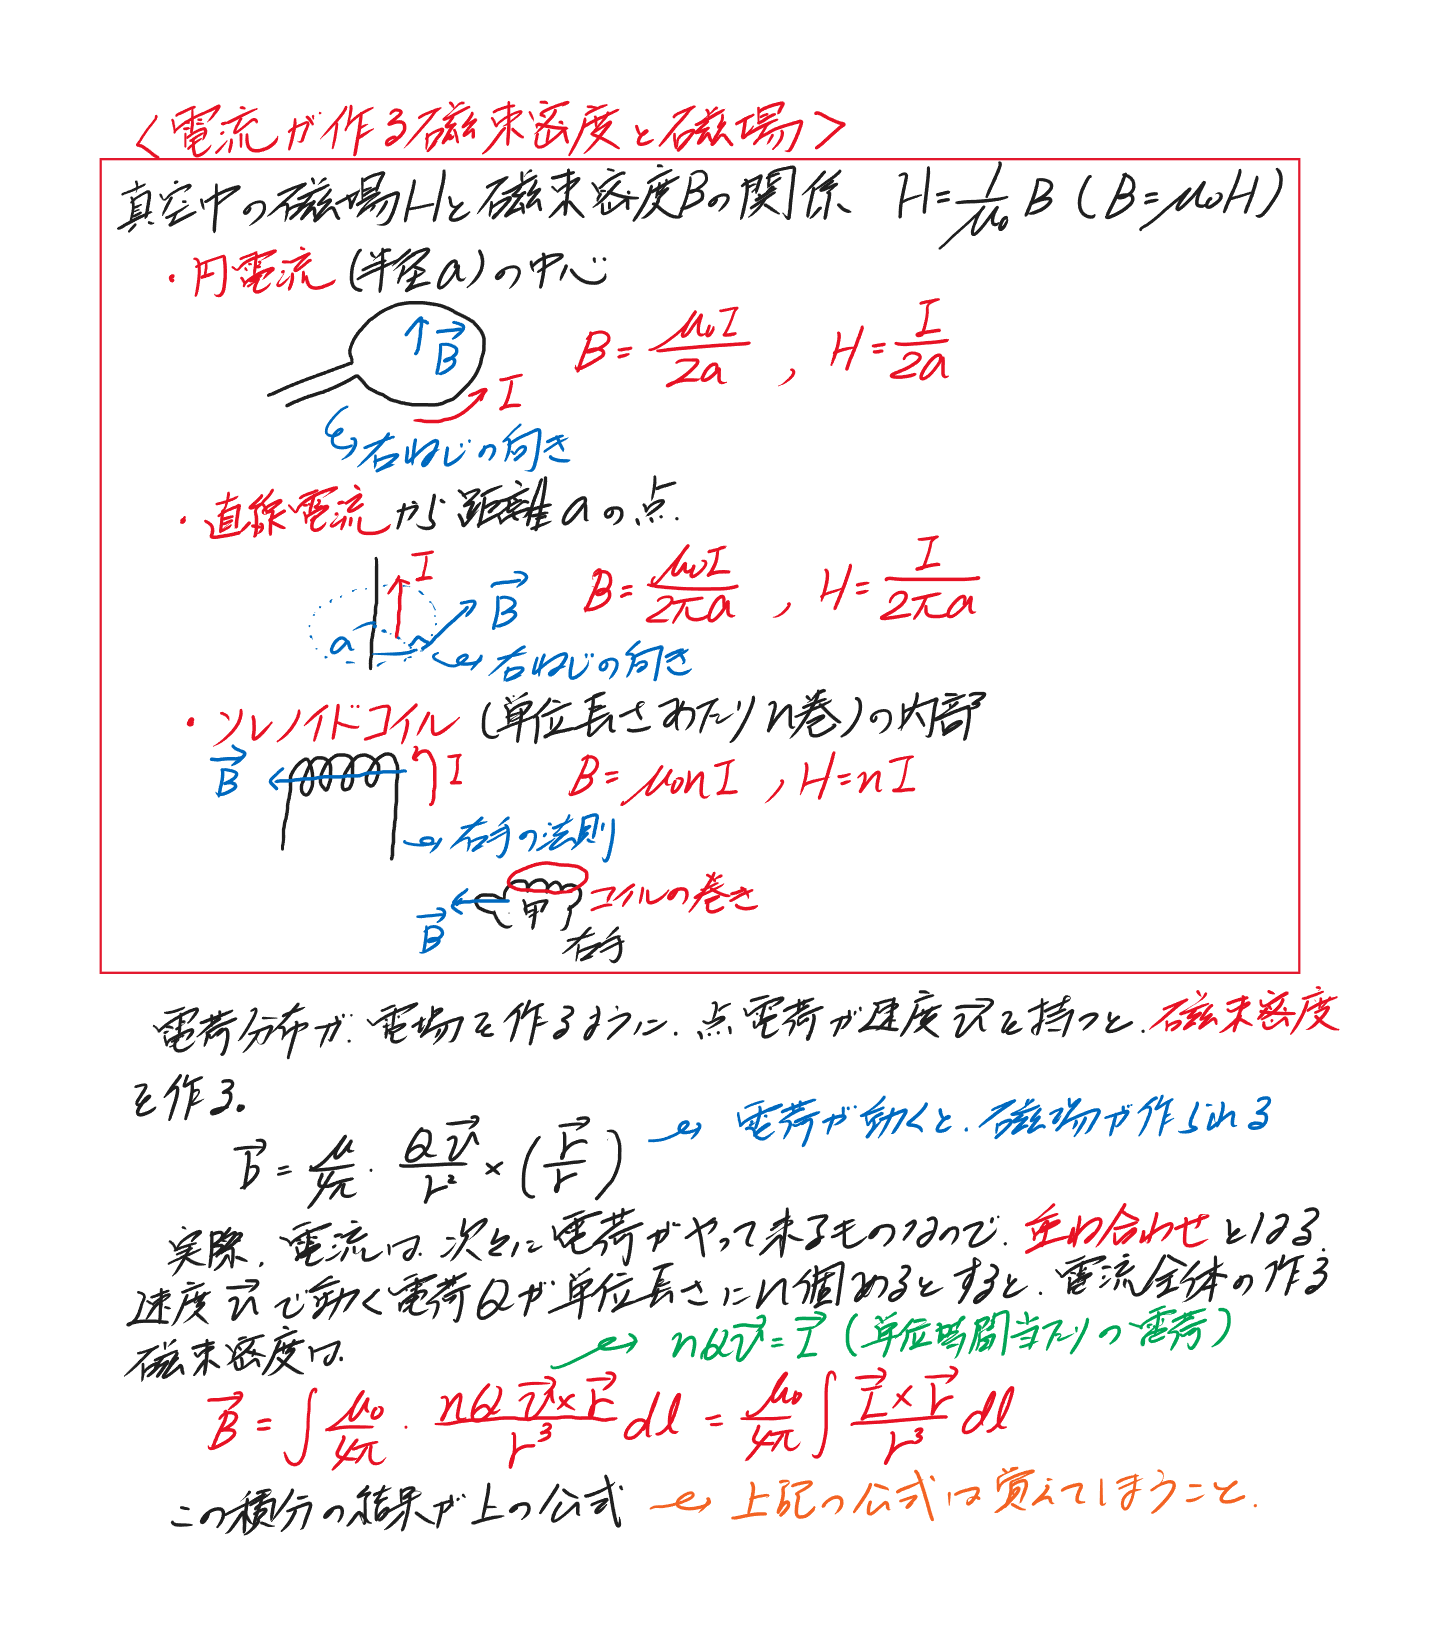 <電流が作る磁束密度と磁場>
真空中の磁場Hと磁束密度Bの関係 H=1/μ₀ B (B=μ₀H)
・円電流(半径a)の中心
B⃗
B=μ₀I/2a , H=I/2a
I
右ねじの向き
・直線電流から距離aの点.
I
B⃗
B=μ₀I/2πa , H=I/2πa
a
右ねじの向き
・ソレノイドコイル(単位長さあたりn巻)の内部
B⃗
I
B=μ₀nI , H=nI
右手の法則
コイルの巻き
甲
B⃗
右手
電荷分布が、電場を作るように、点電荷が速度v⃗を持つと、磁束密度
を作る。
b⃗ = μ/4π · Qv⃗/r² × (r⃗/r)
電荷が動くと、磁場が作られる
実際、電流は、次々に電荷がやって来るものなので、重ね合わせとなる.
速度v⃗で動く電荷Qが単位長さにn個あるとすると、電流全体の作る
磁束密度は、
nQv⃗=I⃗ (単位時間当たりの電荷)
B⃗ = ∫ μ₀/4π · nQv⃗×r⃗/r³ dl = μ₀/4π ∫ I⃗×r⃗/r³ dl
この積分の結果が上の公式
上記の公式は覚えてしまうこと.